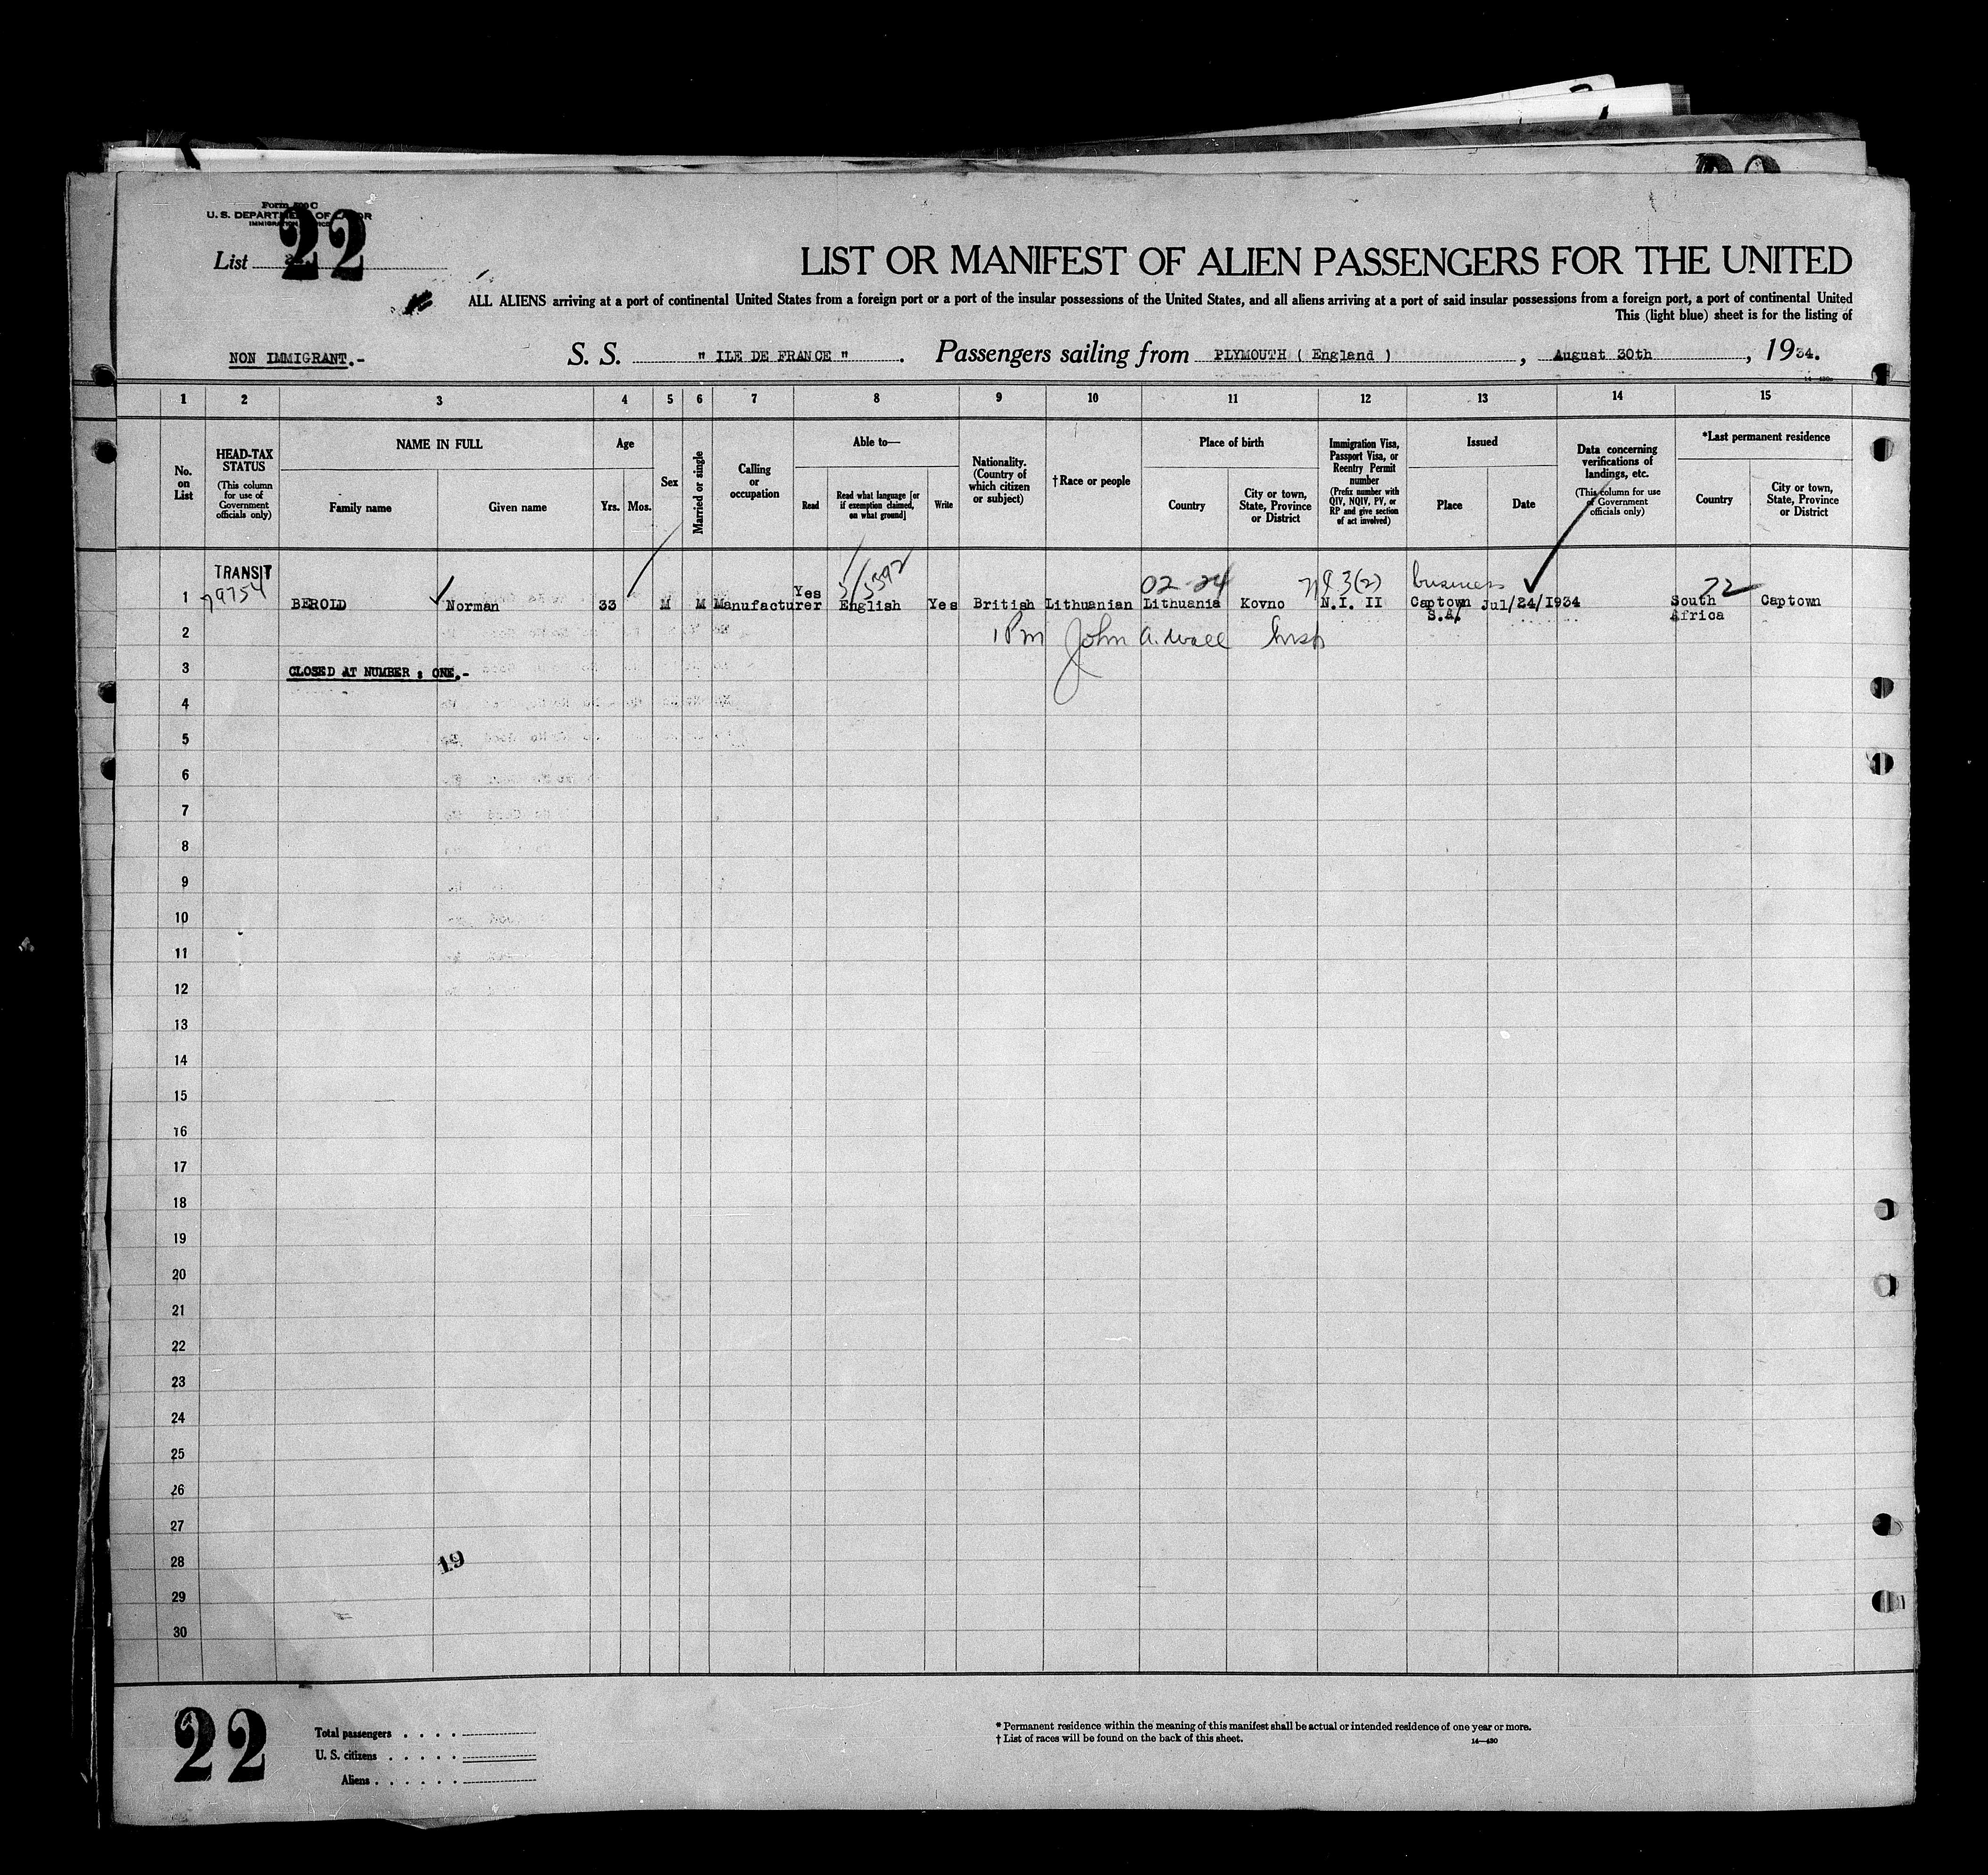 Form 500 C
U. S. DEPARTMENT OF LABOR
IMMIGRATION SERVICE
List 22
LIST OR MANIFEST OF ALIEN PASSENGERS FOR THE UNITED
ALL ALIENS arriving at a port of continental United States from a foreign port or a port of the insular possessions of the United States, and all aliens arriving at a port of said insular possessions from a foreign port, a port of continental United
This (light blue) sheet is for the listing of
NON IMMIGRANT.-
S. S. " ILE DE FRANCE " . Passengers sailing from PLYMOUTH ( England ) , August 30th , 1934.
14—430
1 2 3 4 5 6 7 8 9 10 11 12 13 14 15
No. on List
HEAD-TAX STATUS
(This column for use of Government officials only)
NAME IN FULL
Family name
Given name
Age
Yrs. Mos.
Sex
Married or single
Calling or occupation
Able to—
Read
Read what language [or if exemption claimed, on what ground]
Write
Nationality. (Country of which citizen or subject)
†Race or people
Place of birth
Country
City or town, State, Province or District
Immigration Visa, Passport Visa, or Reentry Permit number
(Prefix number with QIV, NQIV, PV, or RP and give section of act involved)
Issued
Place
Date
Data concerning verifications of landings, etc.
(This column for use of Government officials only)
*Last permanent residence
Country
City or town, State, Province or District
TRANSIT
79754
3/3392
02-24
3(2)
business
72
1 BEROLD Norman 33 M M Manufacturer Yes English Yes British Lithuanian Lithuania Kovno N.I. II Captown S.A. Jul/24/1934 South Africa Captown
2 1 Pm John A. Wall Insp
3 CLOSED AT NUMBER : ONE.-
4
5
6
7
8
9
10
11
12
13
14
15
16
17
18
19
20
21
22
23
24
25
26
27
28 19
29
30
22
Total passengers . . . .
U. S. citizens . . . . .
Aliens . . . . . .
* Permanent residence within the meaning of this manifest shall be actual or intended residence of one year or more.
† List of races will be found on the back of this sheet.
14—430